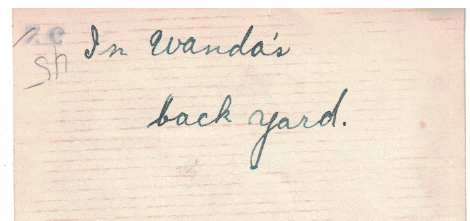 In Wanda's
back yard.